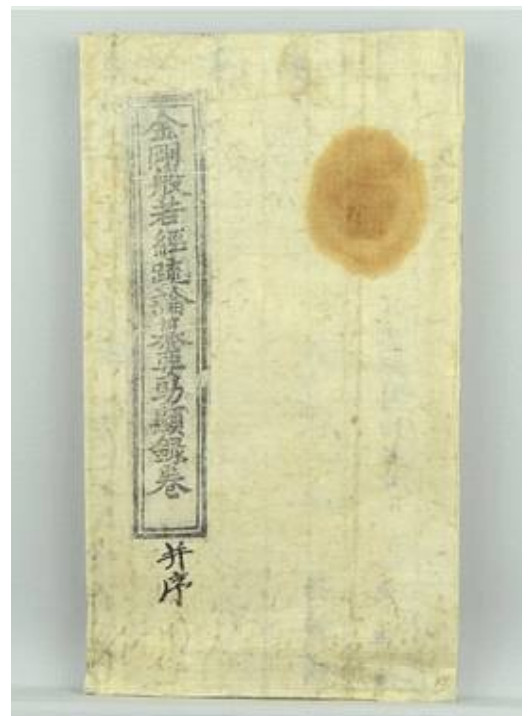 金剛般若經疏論纂要助顯錄卷
并序